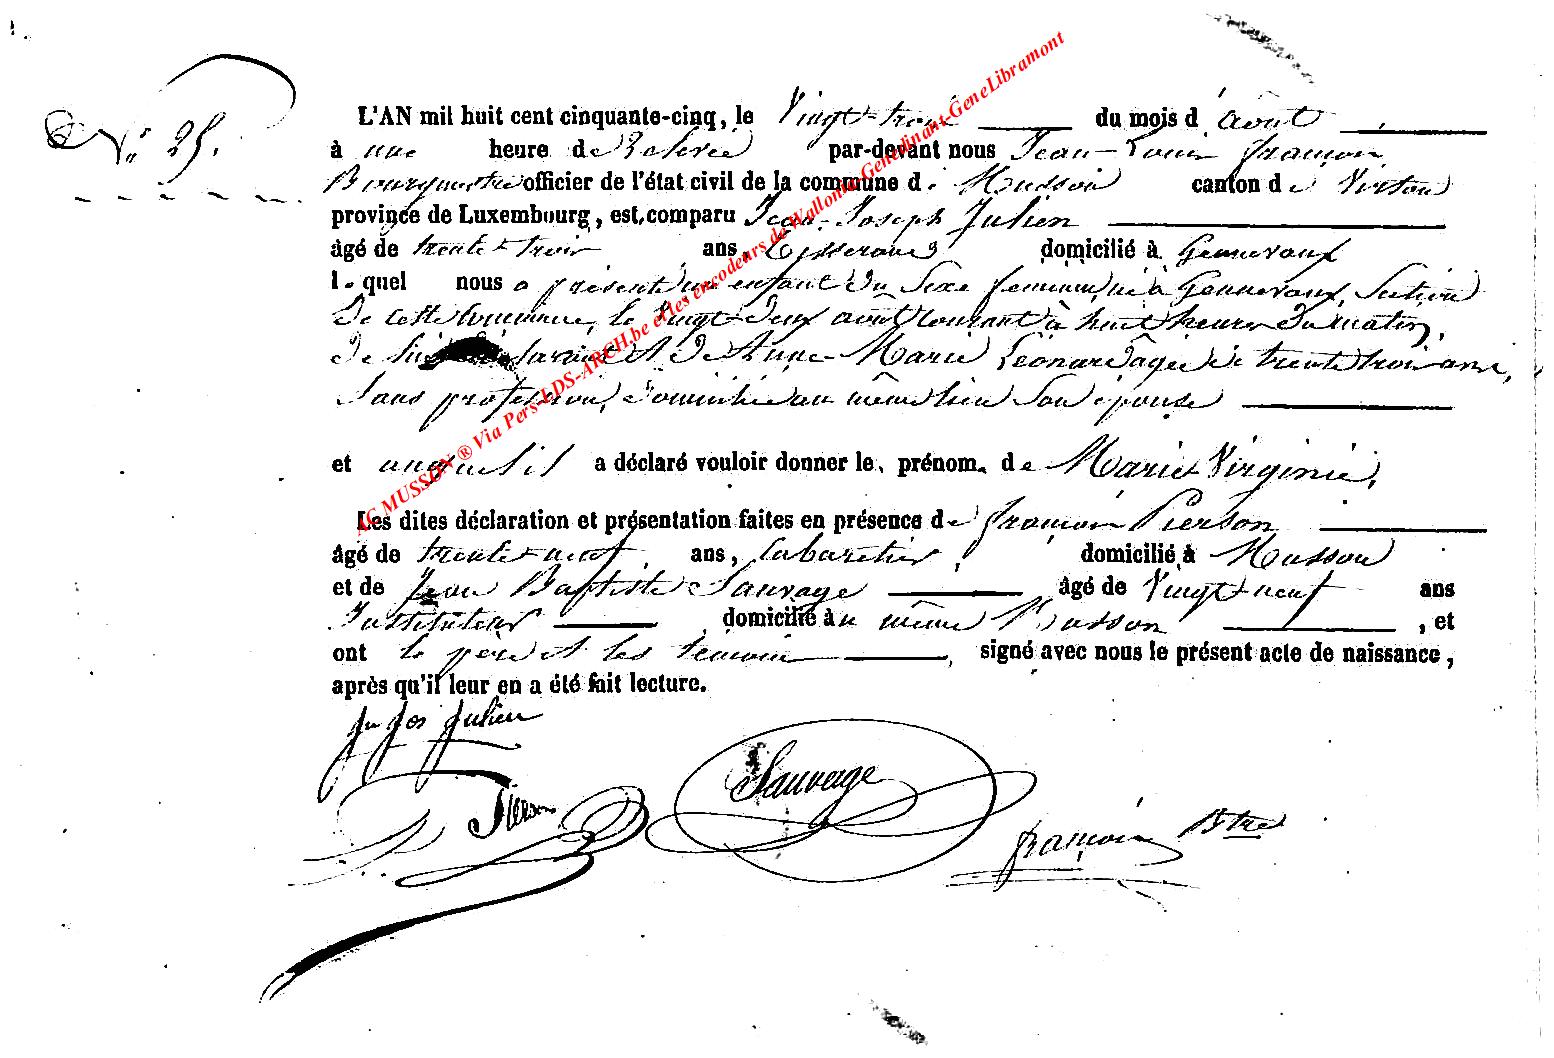 N° 25.
L'AN mil huit cent cinquante-cinq, le Vingt-trois du mois d'août
à une heure de Relevée par-devant nous Jean-Louis françois,
Bourgmestre officier de l'état civil de la commune de Musson canton de Virton
province de Luxembourg, est comparu Jean-Joseph Julien
âgé de trente-trois ans, Tisserand domicilié à Gennevaux
lequel nous a présenté un enfant du Sexe feminin, né à Gennevaux, Section
de cette Commune, le vingt-deux août courant à huit heures du matin,
de lui déclarant et de Anne-Marie Léonard âgée de trente trois ans,
Sans profession, domiciliée au même lieu Son épouse
et auquel il a déclaré vouloir donner le prénom de Marie Virginie,
Les dites déclaration et présentation faites en présence de françois Pierson
âgé de trente-neuf ans, Cabaretier, domicilié à Musson
et de Jean Baptiste Sauvage âgé de Vingt-neuf ans
Instituteur domicilié au même Musson, et
ont le père et les témoins, signé avec nous le présent acte de naissance,
après qu'il leur en a été fait lecture.
Jn Jos Julien
Pierson
Sauvage
françois Btre
AC MUSSON ® Via Pers-LDS-ARCH.be et les encodeurs de Wallonia-Genedinant-GeneLibramont